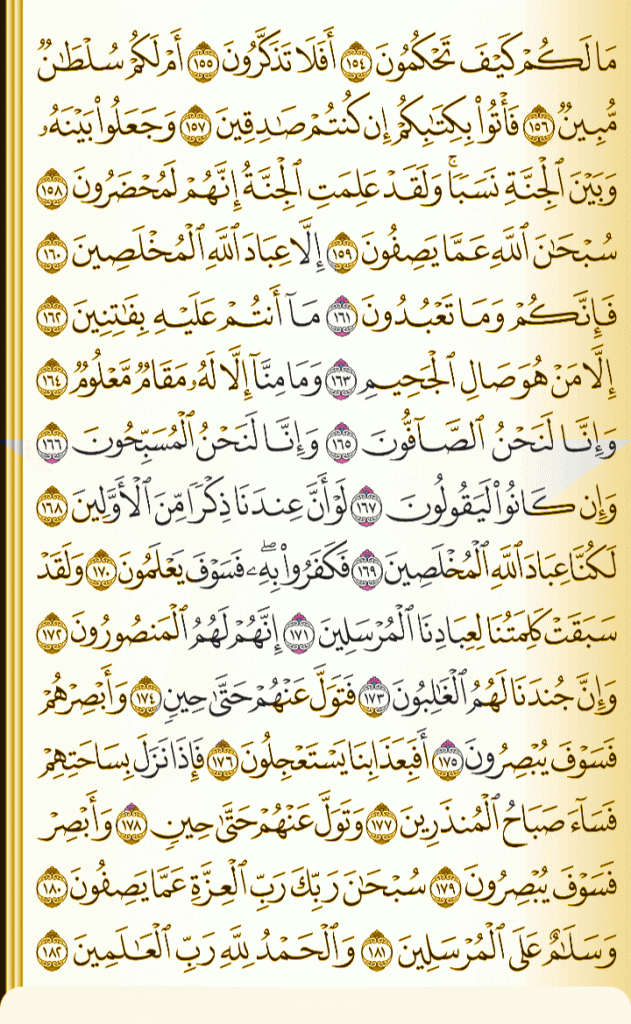 مَا لَكُمْ كَيْفَ تَحْكُمُونَ ١٥٤ أَفَلَا تَذَكَّرُونَ ١٥٥ أَمْ لَكُمْ سُلْطَٰنٌ
مُّبِينٌ ١٥٦ فَأْتُوا۟ بِكِتَٰبِكُمْ إِن كُنتُمْ صَٰدِقِينَ ١٥٧ وَجَعَلُوا۟ بَيْنَهُۥ
وَبَيْنَ ٱلْجِنَّةِ نَسَبًا ۚ وَلَقَدْ عَلِمَتِ ٱلْجِنَّةُ إِنَّهُمْ لَمُحْضَرُونَ ١٥٨
سُبْحَٰنَ ٱللَّهِ عَمَّا يَصِفُونَ ١٥٩ إِلَّا عِبَادَ ٱللَّهِ ٱلْمُخْلَصِينَ ١٦٠
فَإِنَّكُمْ وَمَا تَعْبُدُونَ ١٦١ مَآ أَنتُمْ عَلَيْهِ بِفَٰتِنِينَ ١٦٢
إِلَّا مَنْ هُوَ صَالِ ٱلْجَحِيمِ ١٦٣ وَمَا مِنَّآ إِلَّا لَهُۥ مَقَامٌ مَّعْلُومٌ ١٦٤
وَإِنَّا لَنَحْنُ ٱلصَّآفُّونَ ١٦٥ وَإِنَّا لَنَحْنُ ٱلْمُسَبِّحُونَ ١٦٦
وَإِن كَانُوا۟ لَيَقُولُونَ ١٦٧ لَوْ أَنَّ عِندَنَا ذِكْرًا مِّنَ ٱلْأَوَّلِينَ ١٦٨
لَكُنَّا عِبَادَ ٱللَّهِ ٱلْمُخْلَصِينَ ١٦٩ فَكَفَرُوا۟ بِهِۦ ۖ فَسَوْفَ يَعْلَمُونَ ١٧٠ وَلَقَدْ
سَبَقَتْ كَلِمَتُنَا لِعِبَادِنَا ٱلْمُرْسَلِينَ ١٧١ إِنَّهُمْ لَهُمُ ٱلْمَنصُورُونَ ١٧٢
وَإِنَّ جُندَنَا لَهُمُ ٱلْغَٰلِبُونَ ١٧٣ فَتَوَلَّ عَنْهُمْ حَتَّىٰ حِينٍ ١٧٤ وَأَبْصِرْهُمْ
فَسَوْفَ يُبْصِرُونَ ١٧٥ أَفَبِعَذَابِنَا يَسْتَعْجِلُونَ ١٧٦ فَإِذَا نَزَلَ بِسَاحَتِهِمْ
فَسَآءَ صَبَاحُ ٱلْمُنذَرِينَ ١٧٧ وَتَوَلَّ عَنْهُمْ حَتَّىٰ حِينٍ ١٧٨ وَأَبْصِرْ
فَسَوْفَ يُبْصِرُونَ ١٧٩ سُبْحَٰنَ رَبِّكَ رَبِّ ٱلْعِزَّةِ عَمَّا يَصِفُونَ ١٨٠
وَسَلَٰمٌ عَلَى ٱلْمُرْسَلِينَ ١٨١ وَٱلْحَمْدُ لِلَّهِ رَبِّ ٱلْعَٰلَمِينَ ١٨٢